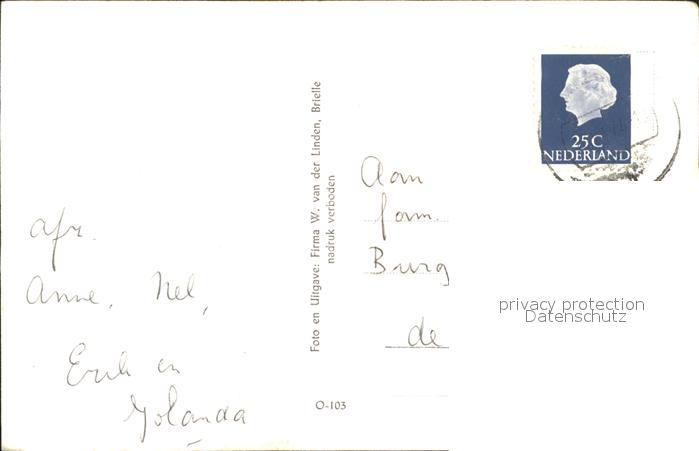 afz.
Anne, Nel,
Erik en
Yolanda
Foto en Uitgave: Firma W. van der Linden, Brielle
nadruk verboden
O-103
25C
NEDERLAND
Aan
fam.
Burg
de
privacy protection
Datenschutz